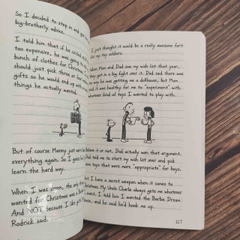 So I decided to step in and g
big-brotherly advice.
I told him that if he asked
too expensive, he was going to
bunch of clothes for Chris
should just pick three or fo
gifts so he would end up with
things he actually wanted.
But of course Manny just we
everything again. So I guess
learn the hard way.
When I was seven, the only
wanted for Christmas was a Bar
And NOT because I like gir
Rodrick said.
I just thought it would be a really awesome fort
for my toy soldiers.
When Mom and Dad saw my wish list that year,
they got in a big fight over it. Dad said there was
no way he was getting me a dollhouse, but Mom
said it was healthy for me to "experiment" with
whatever kind of toys I wanted to play with.
Dad actually won that argument.
told me to start my wish list over and pick
some toys that were more "appropriate" for boys.
But I have a secret weapon when it comes to
Christmas. My Uncle Charlie always gets me whatever
I want. I told him I wanted the Barbie Dream
House, and he said he'd hook me up.
117